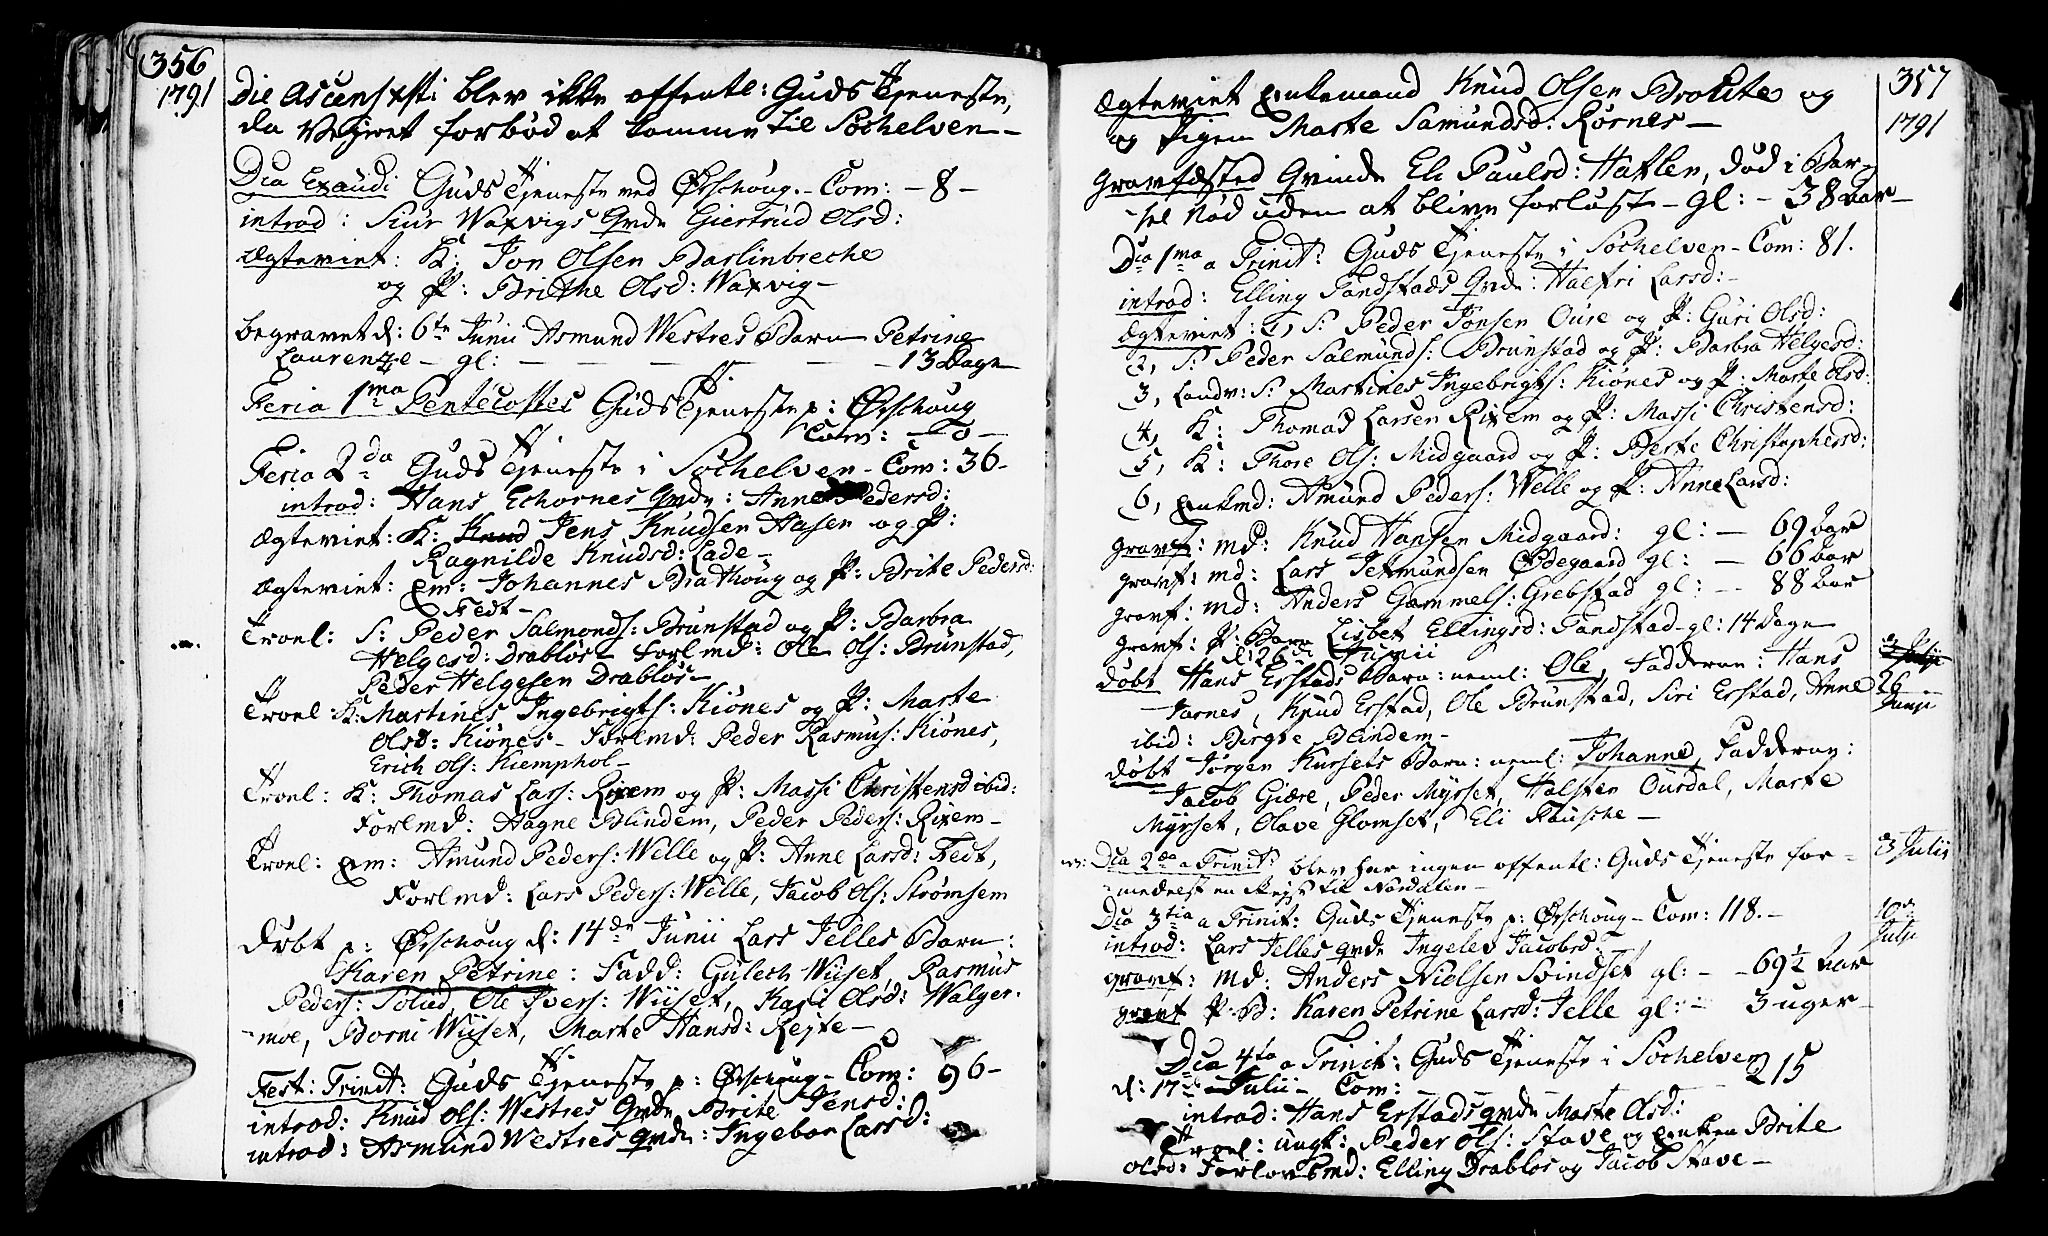 356
1791
Die Ascens: Xsti blev ikke offentl: Guds Tjeneste,
da Vejret forbød at komme til Søchelven –
Dca Exaudi Guds Tjeneste ved Ørschoug. – Com: – 8 –
introd: Siur Waxvigs Qvde Giertrud Olsd:
Ægteviet: K: Jon Olsen Barlinbreche
og P: Brithe Olsd: Waxvig –
begravet d: 6te Junii Asmund Westres Barn Petrine
Laurenze – gl: – – – – – 13 Dage
Feria 1ma Pentecostes Guds Tjeneste p: Ørschoug
Com: – 0 –
Feria 2da Guds Tjeneste i Søchelven – Com: 36 –
introd: Hans Echornes Qvde: Anne Pedersd:
Ægteviet: K: Knud Jens Knudsen Aasen og P:
Ragnilde Knudsd: Lade –
Ægteviet: Em: Johannes Brathoug og P: Brite Pedersd:
Fedt –
Trovl: S: Peder Salmonds: Brunstad og P: Barbra
Helgesd: Drabløs – Forlmd: Ole Ols: Brunstad,
Peder Helgesen Drabløs –
Trovl: K: Martines Ingebrigts: Kiønes og P: Marte
Olsd: Kiønes – Forlmd: Peder Rasmus: Kiønes,
Erich Ols: Kiemphol –
Trovl: K: Thomas Lars: Rixem og P: Massi Christensd ibid:
Forlmd: Aagne Blindem, Peder Peders: Rixem –
Trovl: Em: Amund Peders: Welle og P: Anne Larsd: Fedt,
Forlmd: Lars Peders: Welle, Jacob Ols: Strømsem
Døbt p: Ørschoug d: 14de Junii Lars Jelles Barn:
Karen Petrine: Fadd: Gulech Wiiset, Rasmus
Peders: Solud, Ole Ivers: Wiiset, Kari Olsd: Walger-
moe, Borni Wiiset, Marte Hansd: Rejte –
Fest: Trinit: Guds Tjeneste p: Ørschoug – Com: 96 –
introd: Knud Ols: Westres Qvde Brite Jensd:
introd: Asmund Westres Qvde: Ingebor Larsd:
357
1791
Ægteviet Enkemand Knud Olsen Brolite og
og Pigen Marte Samundsd: Rørnes –
Gravfæsted Qvinde Eli Paulsd: Hatlen, død i Bar-
sel Nød uden at blive forløst – gl: – 38 Aar –
Dca 1ma a Trinit: Guds Tjeneste i Søchelven – Com: 81.
introd: Elling Tandstads Qvde: Halfri Larsd: –
Ægteviet: 1, S: Peder Jonsen Oure og P: Guri Olsd:
2, S: Peder Salmunds: Brunstad og P: Barbra Helgesd:
3, Landv: S: Martines Ingebrigts: Kiønes og P: Marte Olsd:
4, K: Thomas Larsen Rixem og P: Massi Christensd:
5, K: Thore Ols: Midgaard og P: Berte Christophersd:
6, Enkmd: Amund Peders: Welle og P: Anne Larsd:
gravf: md: Knud Hansen Midgaard: gl: – 69 Aar
gravf: md: Lars Jetmundsen Ødegaard gl: – 66 Aar
gravf: md: Anders Gammels: Grebstad gl: – 88 Aar
gravf: P: Barn Lisbet Ellingsd: Tandstad – gl: 14 Dage
d: 26de Junii
døbt Hans Erstads Barn: neml: Ole, Fadderne: Hans
3 Julji
26 Junji
Jarnes, Knud Erstad, Ole Brunstad, Siri Erstad, Anne
ibid: Birgte Blindem –
døbt Jørgen Kursets Barn: neml: Johanne, Fadderne:
Jacob Giære, Peder Myrset, Halsten Oursdal, Marte
Myrset, Olave Glomset, Eli Rusche –
Dca 2da a Trinit: blev her ingen offentl: Guds Tjeneste for-
3 Julii
medelst en Rejse til Nordalen –
Dca 3tia a Trinit: Guds Tjeneste p: Ørschoug – Com: 118. –
10de Julji
introd: Lars Jelles Qvde Ingelev Jacobsd: –
gravf: md: Anders Nielsen Svindset gl: – – 69½ Aar
gravf P: B: Karen Petrine Larsd: Jelle gl: – 3 uger –
Dca 4ta a Trinit: Guds Tjeneste i Søchelven
d: 17de Julii – Com: – – – 215
introd: Hans Erstads Qvde Marte Olsd:
Trovl: ungk: Peder Ols: Stave og Enken Brite
Olsd: Forlovsmd: Elling Drabløs og Jacob Stave –